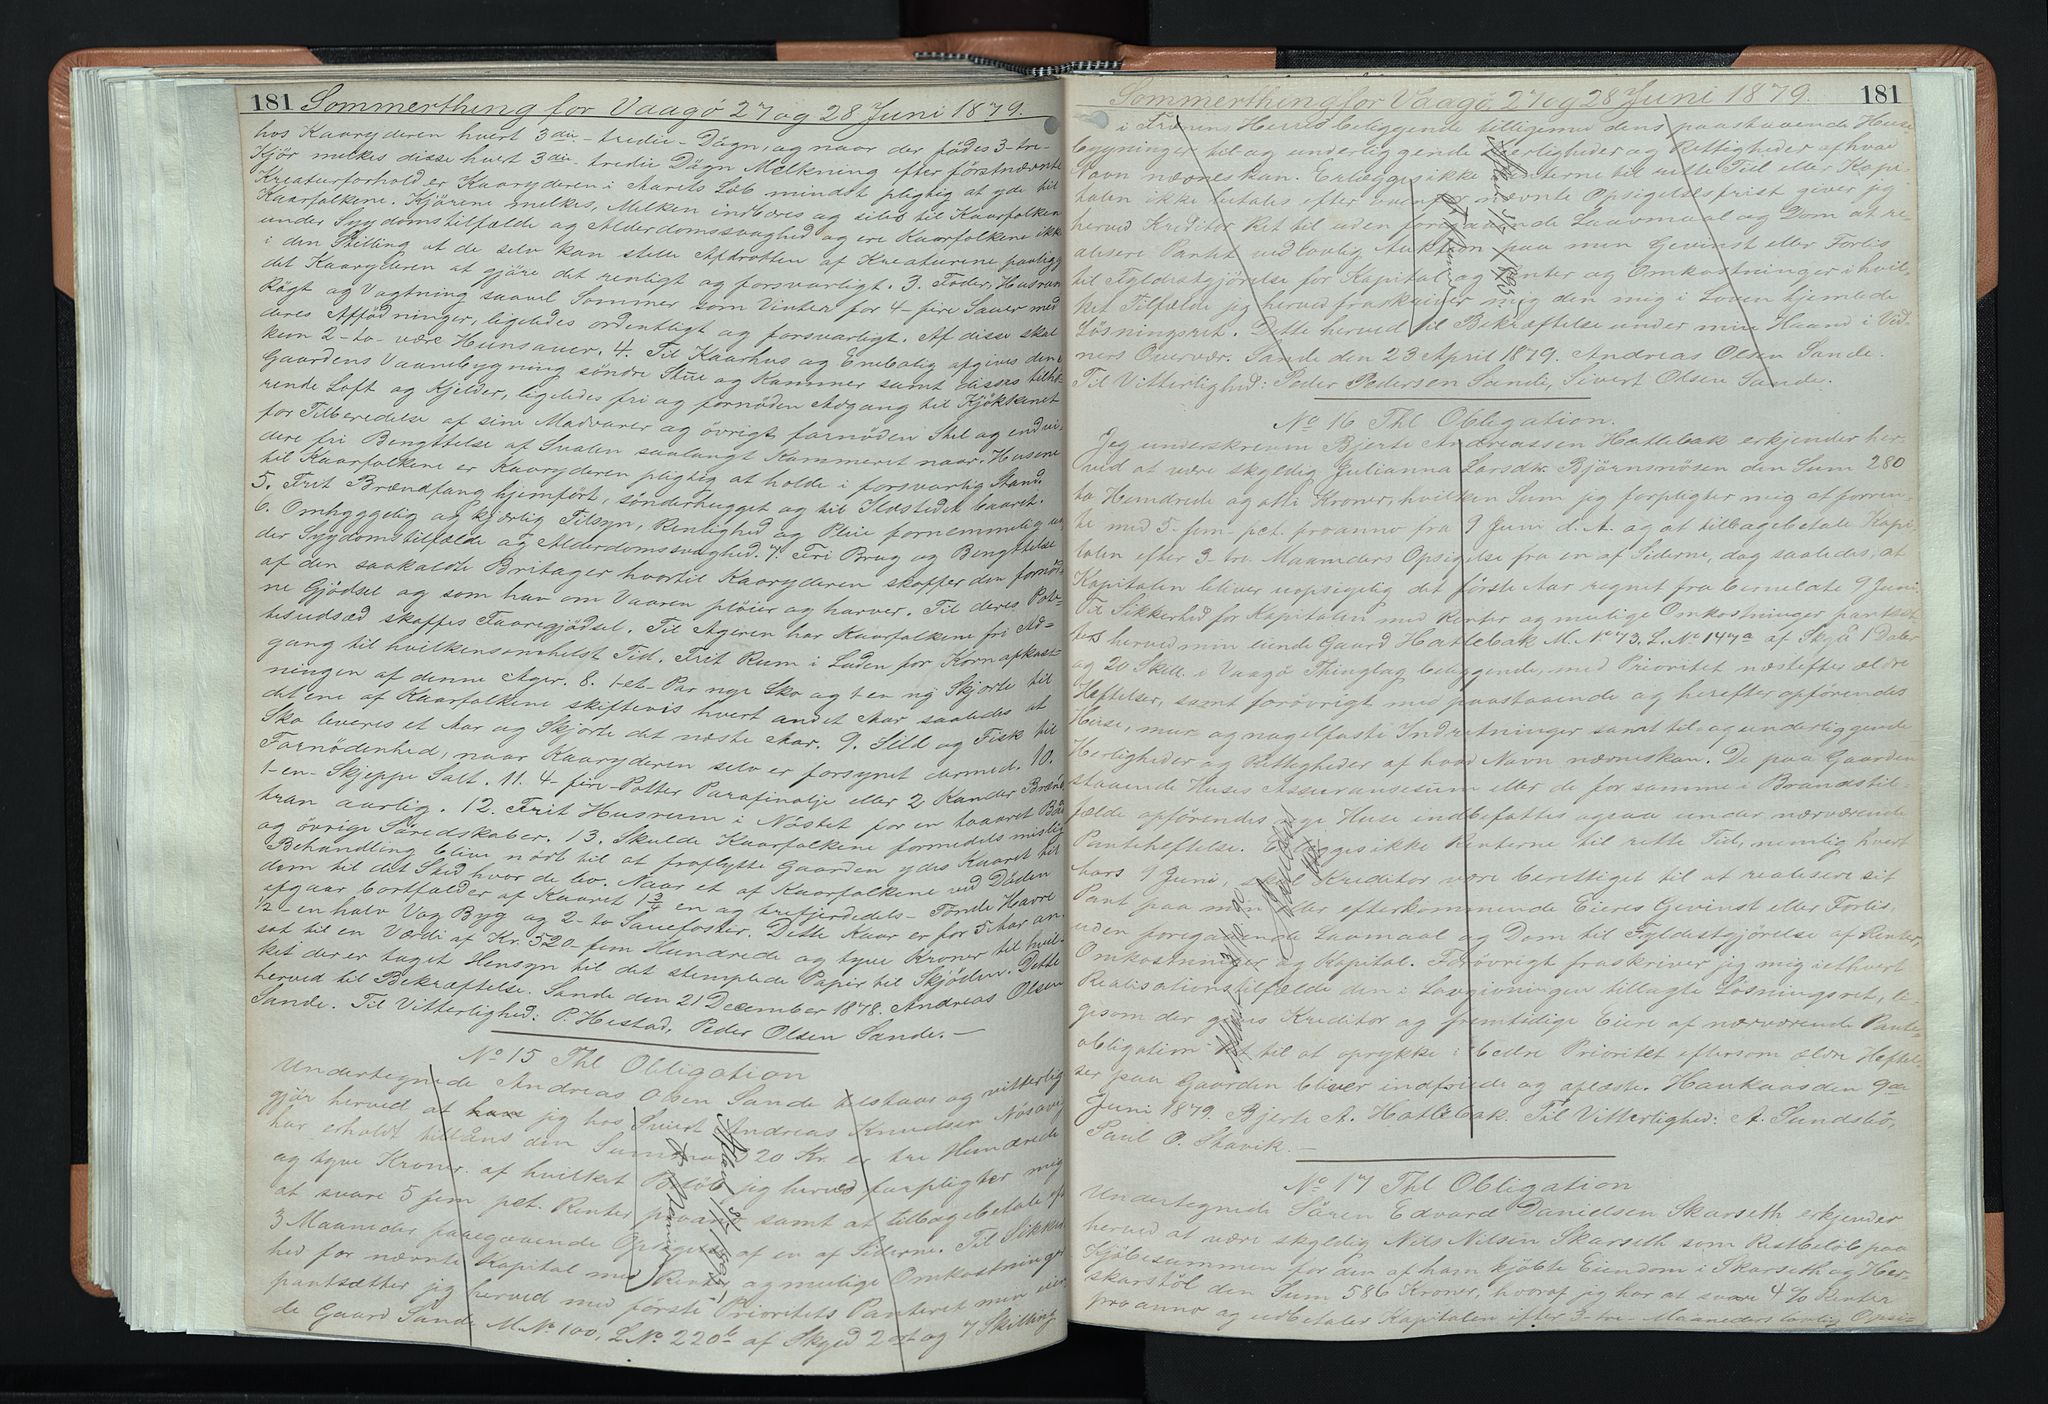 181 Sommerthing for Vaagö 27 og 28 Juni 1879.
hos Kaaryderen hvert 3die- tredie- Dögn, og naar der födes 3-tre-
Kjör melkes disse hvert 3die- tredie Dögn Melkning efter förstnævnte
Kreaturforhold er Kaaryderen i Aarets Löb mindst pligtig at yde til
Kaarfolkene. Kjörene melkes, Melken indbæres og siles til Kaarfolkene
under Sygdomstilfælde og Alderdomssvaghed og ere Kaarfolkene ikke
i den Stilling at de selv kan stelle Afdrotten af Kreaturene paaligger
det Kaaryderen at gjöre det renligt og forsvarligt. 3. Foder, Husrum
Rögt og Vogtning saavel Sommer som Vinter for 4- fire Sauer med
deres Affödninger, ligeledes ordentligt og forsvarligt. Af disse skal
kun 2- to- være Hunsauer. 4. Til Kaarhus og Enebolig afgives den i
Gaardens Vaanbygning söndre Stue og Kammer samt disses tilhö-
rende Loft og Kjelder, ligeledes fri og fornöden Adgang til Kjökkenet
for Tilberedelse af sine Madvarer og övrigt fornöden Stel og endvi-
dere fri Benyttelse af Svalen saalangt Kammeret naar. Husene
til Kaarfolkene er Kaaryderen pligtig at holde i forsvarlig Stand.
5. Frit Brændfang hjemfört, sönderhugget og til Ildstedet baaret.
6. Omhyggelig og kjærlig Tilsyn, Renlighed og Pleie fornemmelig un-
der Sygdomstilfælde og Alderdomssvaghed. 7. Fri Brug og Benyttelse
af den saakaldte Britager hvortil Kaaryderen skaffer den fornöd-
ne Gjödsel og som han om Vaaren plöier og harver. Til deres Pote-
tesudsæd skaffes Faaregjödsel. Til Ageren har Kaarfolkene fri Ad-
gang til hvilkensomhelst Tid. Frit Rum i Laden for Kornafkast-
ningen af denne Ager. 8. 1-et- Par nye Sko og 1 en ny Skjorte til
det ene af Kaarfolkene skiftevis hvert andet Aar saaledes at
Sko leveres et Aar og Skjorte det næste Aar. 9. Sild og Fisk til
Fornödenhed, naar Kaaryderen selv er forsynet dermed. 10.
1-en- Skjeppe Salt. 11. 4- fire- Potter Parafinolje eller 2 Kander Brænd-
tran aarlig. 12. Frit Husrum i Nöstet for en toaaret Baad
og övrige Söredskaber. 13. Skulde Kaarfolkene formedels mislig
Behandling blive nört til at fraflytte Gaarden ydes Kaaret til
dem til det Sted hvor de bo. Naar et af Kaarfolkene ved Döden
afgaar bortfalder af Kaaret 1 3/4 en og trefjerdedels- Tönde Havre
1/2- en halv Vog Byg og 2- to Sauefoster. Dette Kaar er for 5 Aar an-
sat til en Værdi af Kr. 520- fem Hundrede og tyve Kroner til hvil-
ket der er taget Hensyn til det stemplede Papir til Skjöden. Dette
herved til Bekræftelse. Sande den 21 December 1878. Andreas Olsen
Sande. Til Vitterlighed: P. Hestad, Peder Olsen Sande.-
No 15 Thl Obligation
Undertegnede Andreas Olsen Sande tilstaar og vitterlig
gjör herved, at have jeg hos Sivert Andreas Knudsen Nösavej
har erholdt tillåns den Summa 320 Kr. er tre Hundrede
og tyve Kroner. af hvilket Belöb jeg herved forpligter mig
at svare 5 fem pct. Renter pro anno samt at tilbagebetale efter
3 Maaneder foregaaende Opsigelse af en af Siderne. Til Sikker-
hed for nævnte Kapital med Renter og mulige Omkostninger
pantsætter jeg herved med förste Prioritets Panteret min eien-
de Gaard Sande M.No 100. L.No 220b af Skyld 2 ort og 7 Skilling
Sommerthing for Vaagö 27 og 28 Juni 1879. 181
i Frænens Herred beliggende tilligemed dens paastaaende Huse
bygninger til- og underliggende Herligheder og Rettigheder af hvad
Navn nævnes kan. Erlægges ikke Renterne til rette Tid eller Kapi-
talen ikke betales efter nævnte Opsigelsesfrist giver jeg
herved Kreditor Ret til uden foregaaende Lavmaal og Dom at re-
alisere Pantet ved lovlig Auktion paa min Gevinst eller Forlis
til Fyldestgjörelse for Kapital og Renter og Omkostninger i hvil-
ket Tilfælde jeg herved fraskriver mig den mig i Loven hjemlede
Lösningsret. Dette herved til Bekræftelse under min Haand i Vid-
ners Overvær. Sande den 23 April 1879. Andreas Olsen Sande.
Til Vitterlighed: Peder Pedersen Sande, Sivert Olsen Sande.
No 16 Thl Obligation.
Jeg underskreune Bjerte Andreassen Hatlebak erkjender her-
ved at være skyldig Julianna Larsdtr. Björnsnösen den Sum 280
to Hundrede og otti Kroner, hvilken Sum jeg forpligter mig at forren-
te med 5- fem- pct. pro anno fra 9 Juni d. A. og at tilbagebetale Kapi-
talen efter 3- tre Maaneders Opsigelse fra en af Siderne, dog saaledes, at
Kapitalen bliver uopsigelig det förste Aar regnet fra bemeldte 9 Juni.
Til Sikkerhed for Kapitalen med Renter og mulige Omkostninger pantsæt-
tes herved min eiende Gaard Hatlebak M. No 73. L. No 147a af Skyld 1 Daler
og 20 Skill. i Vaagö Thinglag beliggende, med Prioritet næstefter ældre
Heftelser, samt forövrigt med paastaaende og herefter opförendes
Huse, mur- og nagelfaste Indretninger samt til- og underliggende
Herligheder og Rettigheder af hvad Navn nævnes kan. De paa Gaarden
staaende Huses Assuransesum eller de for samme i Brandstil-
fælde opförendes nye Huse indbefattes ogsaa under nærværende
Panteheftelse. Erlægges ikke Renterne til rette Tid, nemlig hvert
Aars 9 Juni, skal Kreditor være berettiget til at realisere sit
Pant paa min eller efterkommende Eieres Gevinst eller Forlis,
uden foregaaende Lavmaal og Dom til Fyldestgjörelse af Renter,
Omkostninger og Kapital. Forövrigt fraskriver jeg mig i ethvert
Realisationstilfælde den i Lovgivningen tillagte Lösningsret, li-
gesom der gives Kreditor og fremtidige Eiere af nærværende Pante-
obligation Ret til at oprykke i bedre Prioritet eftersom ældre Heftel-
ser paa Gaarden bliver indfriede og aflæste. Haukaas den 9de
Juni 1879. Bjerte A. Hatlebak. Til Vitterlighed: A. Sundsbö,
Paul O. Stavik.-
No 17 Thl Obligation
Undertegnede Sören Edvard Danielsen Skarseth erkjender
herved at være skyldig Nils Nilsen Skarseth som Restbelöb paa
Kjöbesummen for den af ham kjöbte Eiendom i Skarseth og Her-
skarstöl den Sum 586 Kroner, hvoraf jeg har at svare 4 % Renter
pro anno og udbetaler Kapitalen efter 3- tre- Maaneders lovlig Opsi-